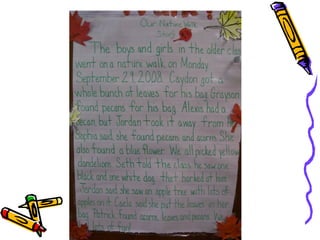 Our Nature Walk
Story
The boys and girls in the older class
went on a nature walk on Monday
September 29, 2008. Caydon got a
whole bunch of leaves for his bag. Grayson
found pecans for his bag. Alexis had a
pecan but Jordan took it away from
Sophia said she found pecans and acorns. She
also found a blue flower. We all picked yellow
dandelions. Seth told the class he saw one
black and one white dog that barked at him.
Jordan said she saw an apple tree with lots of
apples on it. Carla said she put the leaves in her
bag. Patrick found acorns, leaves and pecans. We
lots of fun!